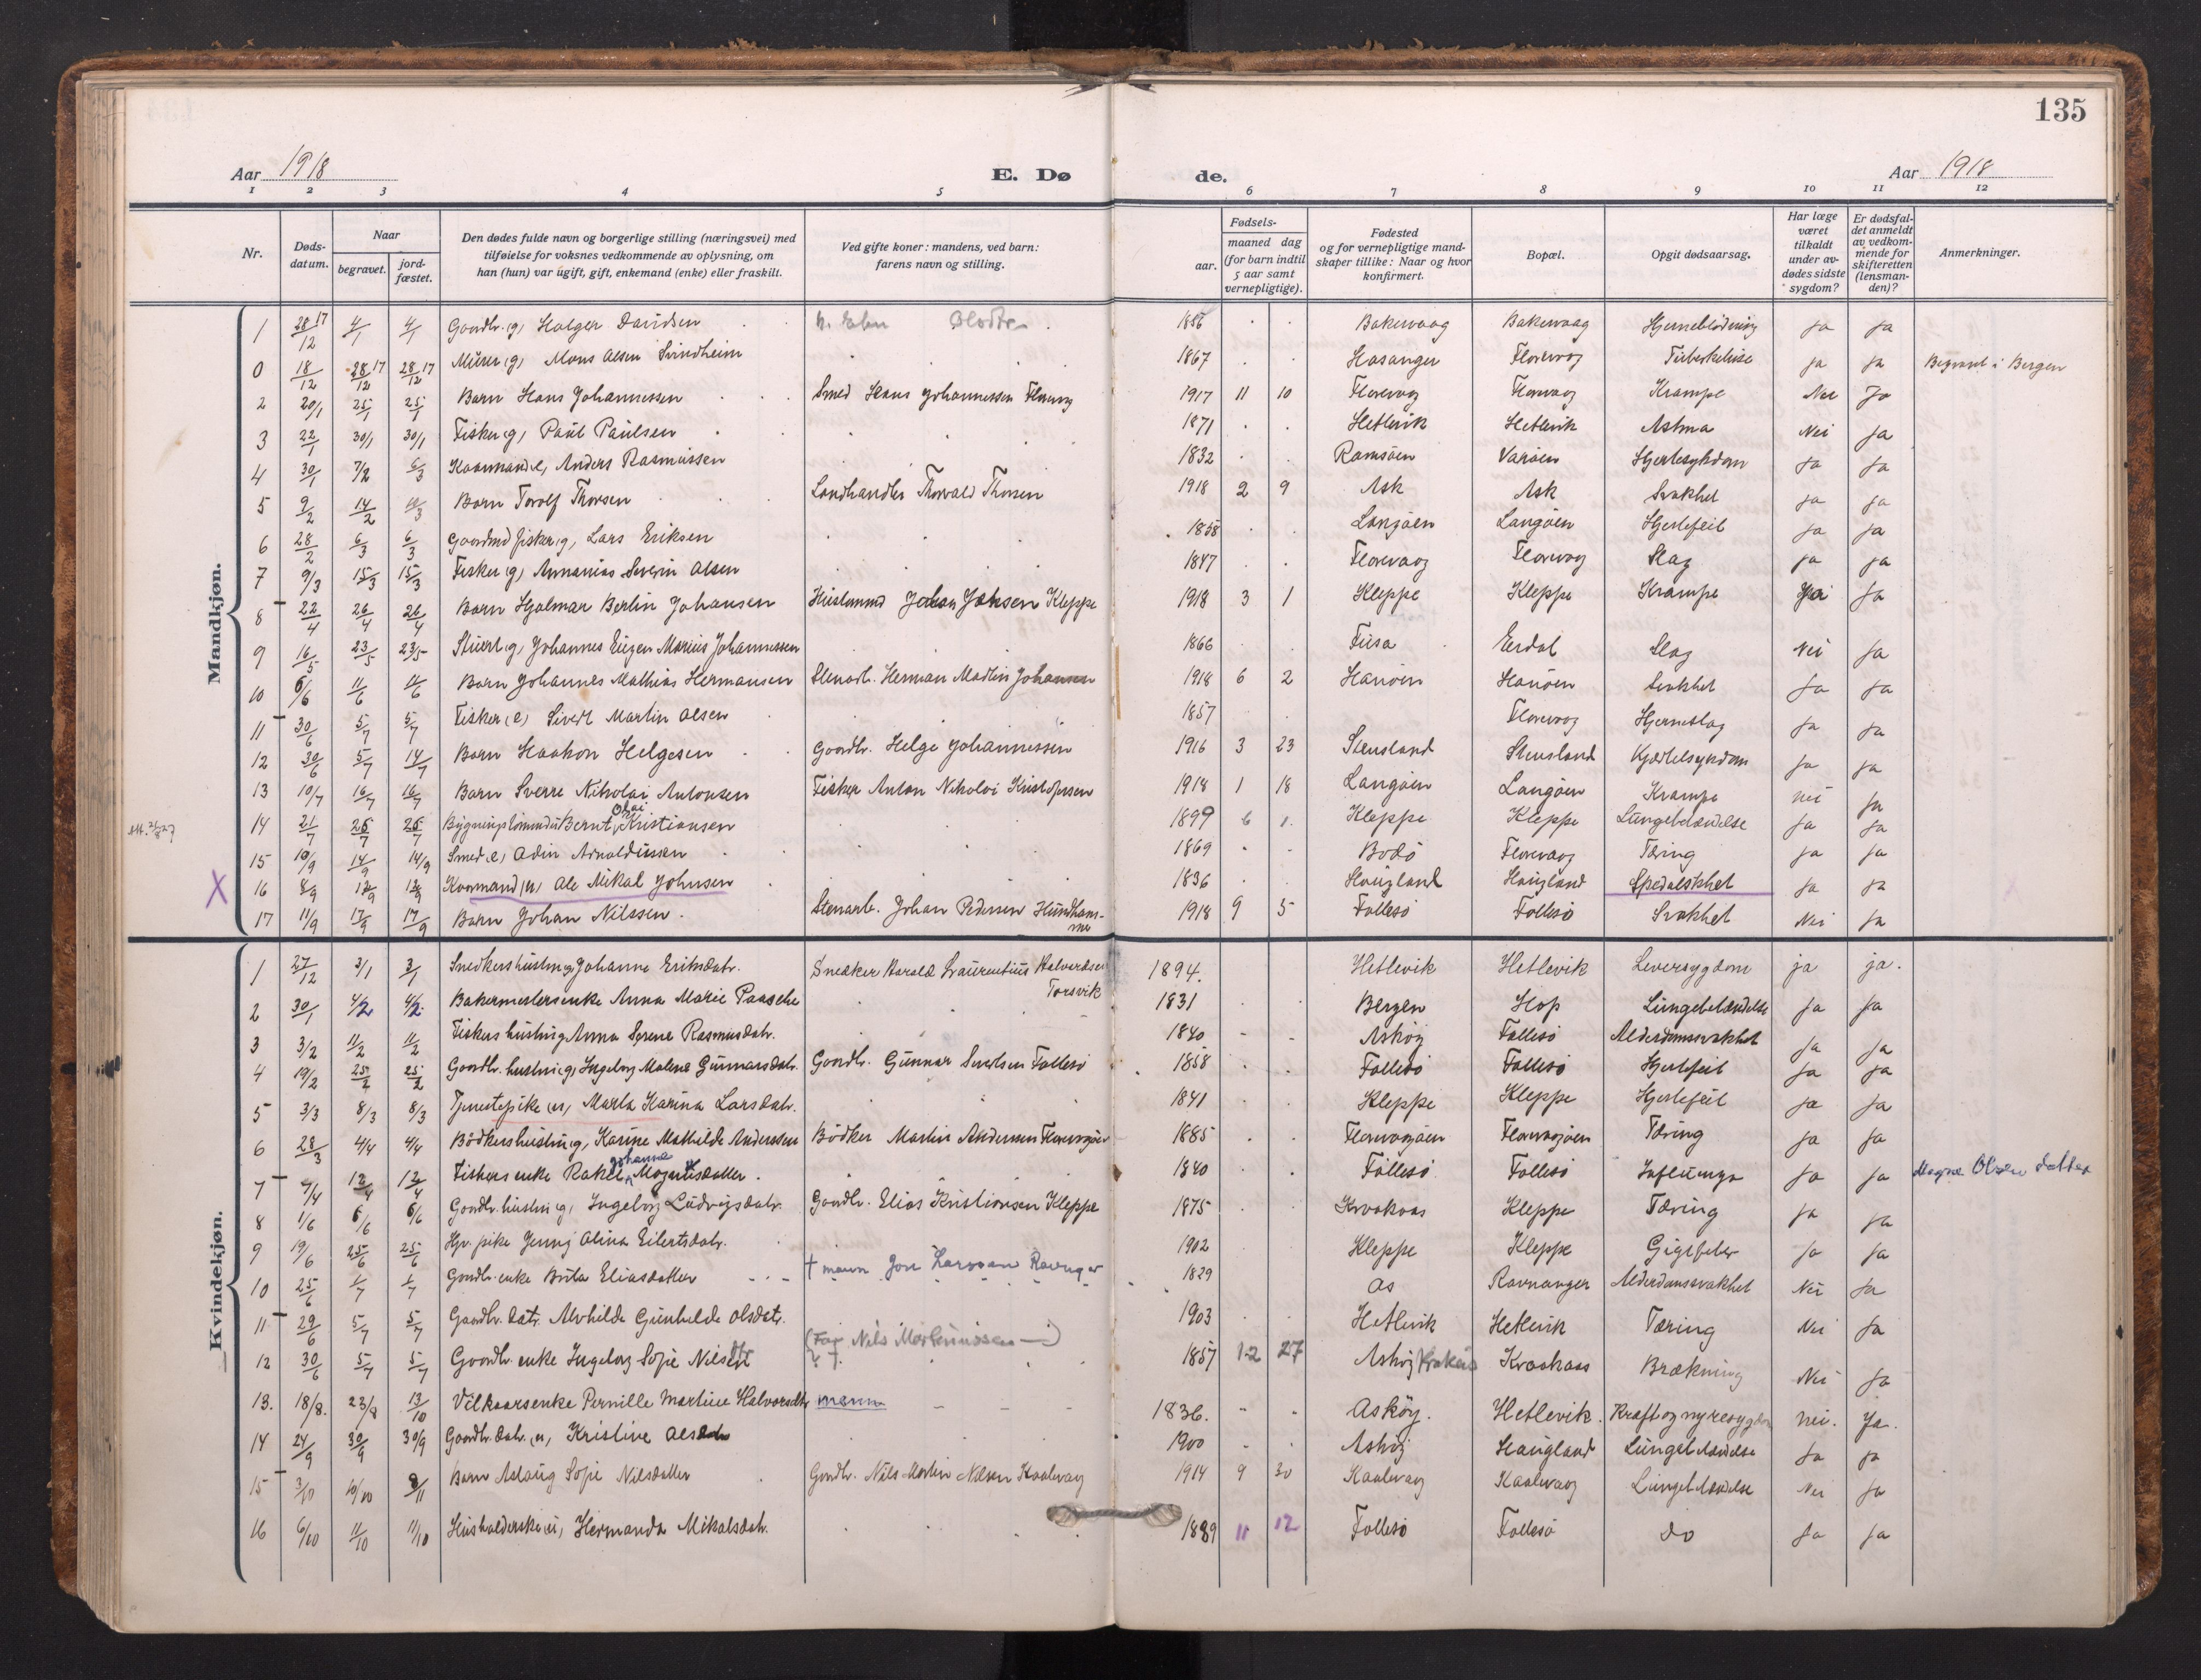 135
Aar 1918 E. Dø de. Aar 1918
1 2 3 4 5 6 7 8 9 10 11 12
Nr. Døds-datum. Naar begravet. jord-fæstet. Den dødes fulde navn og borgerlige stilling (næringsvei) med tilføielse for voksnes vedkommende av oplysning, om han (hun) var ugift, gift, enkemand (enke) eller fraskilt. Ved gifte koner: mandens, ved barn: farens navn og stilling. Fødsels- aar. maaned dag (for barn indtil 5 aar samt vernepligtige). Fødested og for vernepligtige mandskaper tillike: Naar og hvor konfirmert. Bopæl. Opgit dødsaarsag. Har læge været tilkaldt under avdødes sidste sygdom? Er dødsfaldet anmeldt av vedkommende for skifteretten (lensmanden)? Anmerkninger.
Mandkjøn.
1 28/12 17 4/1 4/1 Gaardbr. (g) Holger Davidsen 1856 Bakervaag Bakervaag Hjerneblødning ja ja
0 18/12 28/12 17 28/12 17 Murer (g) Mons Olsen Svindheim 1867 Hosanger Florvaag Tuberkulose ja ja Begravet i Bergen
2 20/1 25/1 25/1 Barn Hans Johannessen Smed Hans Johannessen Florvaag 1917 11 10 Florevaag Florvaag Krampe Nei Ja
3 22/1 30/1 30/1 Fisker (g) Paul Paulsen 1871 Hetlevik Hetlevik Astma Nei ja
4 30/1 7/2 6/3 Kaarmand (e) Anders Rasmussen 1832 Ramsøen Varøen Hjertesykdom ja ja
5 9/2 14/2 10/3 Barn Torolf Thorsen Landhandler Thorvald Thorsen 1918 2 9 Ask Ask Svakhet ja ja
6 28/2 6/3 6/3 Gaardmd fisker (g) Lars Eriksen 1858 Langøen Langøen Hjertefeil ja ja
7 9/3 15/3 15/3 Fisker (g) Annanias Severin Olsen 1847 Florevaag Florevaag Slag ja ja
8 22/4 26/4 26/4 Barn Hjalmar Berlin Johansen Husmand Johan Johnsen Kleppe 1918 3 1 Kleppe Kleppe Krampe Ja
9 16/5 23/5 23/5 Stuert (g) Johannes Eugen Marius Johannessen 1866 Fusa Erdal Slag Nei ja
10 6/6 11/6 11/6 Barn Johannes Mathias Hermansen Stenarb. Herman Martin Johansen 1918 6 2 Hanøen Hanøen Svakhet Ja ja
11 30/6 5/7 5/7 Fisker (e) Sivert Martin Olsen 1857 Florevaag Hjerneslag ja ja
12 30/6 5/7 14/7 Barn Haakon Helgesen Gaardbr. Helge Johannessen 1916 3 23 Stensland Stensland Kjertelsykdom ja ja
13 10/7 16/7 16/7 Barn Sverre Nikolai Antonsen Fisker Anton Nikolai Kristofersen 1918 1 18 Langøen Langøen Krampe nei ja
14 21/7 25/7 25/7 Bernt Olai Kristiansen 1899 6 1 Kleppe Kleppe Lungebetændelse ja ja
15 10/9 14/9 14/9 Smed (e) Odin Arnoldussen 1869 Bodø Florevaag Tæring ja ja
X 16 8/9 12/9 12/9 Kaarmand (u) Ole Mikal Johnsen 1836 Haugland Haugland Spedalskhet ja ja
17 11/9 17/9 17/9 Barn Johan Nilssen. Stenarb. Johan Pedersen 1918 9 5 Follesø Follesø Svakhet Nei ja
Kvindekjøn.
1 27/12 3/1 3/1 Snedkers hustru (g) Johanna Eriksdatr. Snedker Harald Laurentius Halvorsen Torsvik 1894. Hetlevik Hetlevik Leversygdom ja ja.
2 30/1 4/2 4/2 Bakermesters enke Anna Marie Paasche 1831 Bergen Hop Lungebetændelse ja ja
3 3/2 11/2 11/2 Fiskers hustru g Anna Serene Rasmusdatr. 1840 Askøy Follesø Alderdomssvakhet ja ja
4 19/2 25/2 25/2 Gaardbr. hustru (g) Ingeborg Malene Gunnarsdatr. Gaardbr. Gunnar Follesø 1858 Follesø Follesø Hjertefeil ja ja
5 3/3 8/3 8/3 Tjenestepike (u) Marta Karina Larsdatr. 1841 Kleppe Kleppe Hjertefeil ja ja
6 28/3 4/4 4/4 Bødkers hustru g, Karine Mathilde Anderssen Bødker Martin Andersen Florvagøen 1885 Florvagøen Florvagøen Tæring ja ja
7 7/4 12/4 12/4 Fiskers enke Rakel Johanna Magnusdatter. 1840 Follesø Follesø Influensa ja ja Magne Olsens datter
8 1/6 6/6 6/6 Gaardbr. hustru (g) Ingeborg Ludvigsdatr. Gaardbr. Elias Kristiansen Kleppe 1875 Krokaas Kleppe Tæring ja ja
9 19/6 25/6 25/6 Hjv. pike Jenny Olina Eilertsdatr. 1902 Kleppe Kleppe Gigtfeber ja ja
10 25/6 1/7 1/7 Gaardbr. enke Brita Eliasdatter + mann Jon Larssen 1829 Os Ravnanger Alderdomssvakhet Nei Ja
11 29/6 5/7 5/7 Gaardbr. datr. Alvhilde Gunhilde Olsdatr. 1903 Hetlevik Hetlevik Tæring Nei Ja
12 30/6 5/7 5/7 Gaardbr. enke Ingeborg Sofie Nilsdtr (Far Nils Mortenssen —) 1857 12 27 Askøy Krokaas Krokaas Brækning Nei Ja
13. 18/8. 23/8 13/10 Vilkaarsenke Pernille Martine Halvorsdtr mann 1836. Askøy. Hetlevik. Kræft og nyresygdom nei. Ja.
14 24/9 30/9 30/9 Gaardbr. datr. (u) Kristine Olsdatr 1900 Askøy Haugland Lungebetændelse Ja ja
15 3/10 10/10 Barn Aslaug Sofie Nilsdatter Gardbr. Nils Martin Nilsen Kaalevaag 1914 9 30 Kaalevaag Kaalevaag Lungebetændelse Nei ja
16 6/10 11/10 11/10 Husholderske (u) Hermanda Mikalsdatr. 1889 11 12 Follesø Follesø do Ja ja